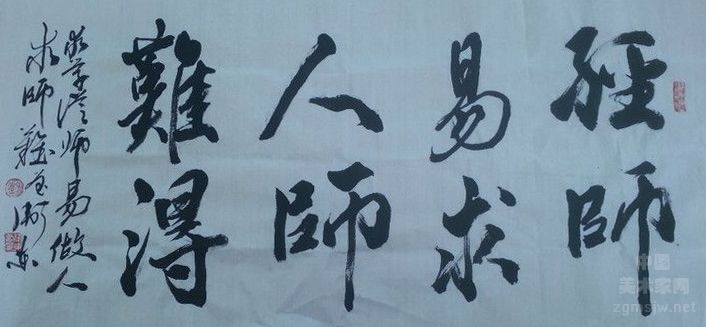 經師
易求
人師
難得
師易做人
求師難
中国
美术家网
zgmsjw.net